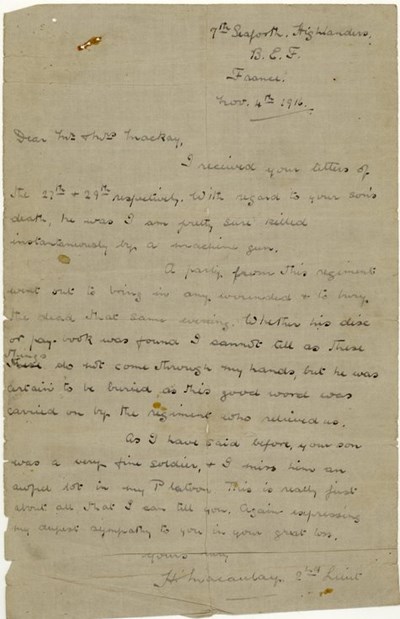 7th Seaforth Highlanders,
B.E.F.
France.
Nov. 4th 1916.
Dear Mr. & Mrs Mackay,
I received your letters of
the 27th & 29th respectively. With regard to your son's
death, he was I am pretty sure killed
instantaneously by a machine gun.
A party from this regiment
went out to bring in any wounded & to bury
the dead that same evening. Whether his disc
or pay-book was found I cannot tell as these
things
do not come through my hands, but he was
certain to be buried, as this good work was
carried on by the regiment who relieved us.
As I have said before, your son
was a very fine soldier, & I miss him an
awful lot in my Platoon. This is really just
about all that I can tell you. Again expressing
my deepest sympathy to you in your great loss.
Yours
H. Macaulay. 2nd Lieut